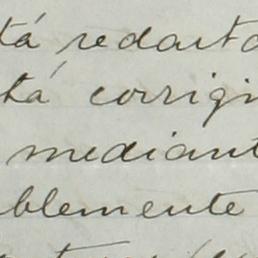 tá redacta
tá corrigi
mediant
blemente